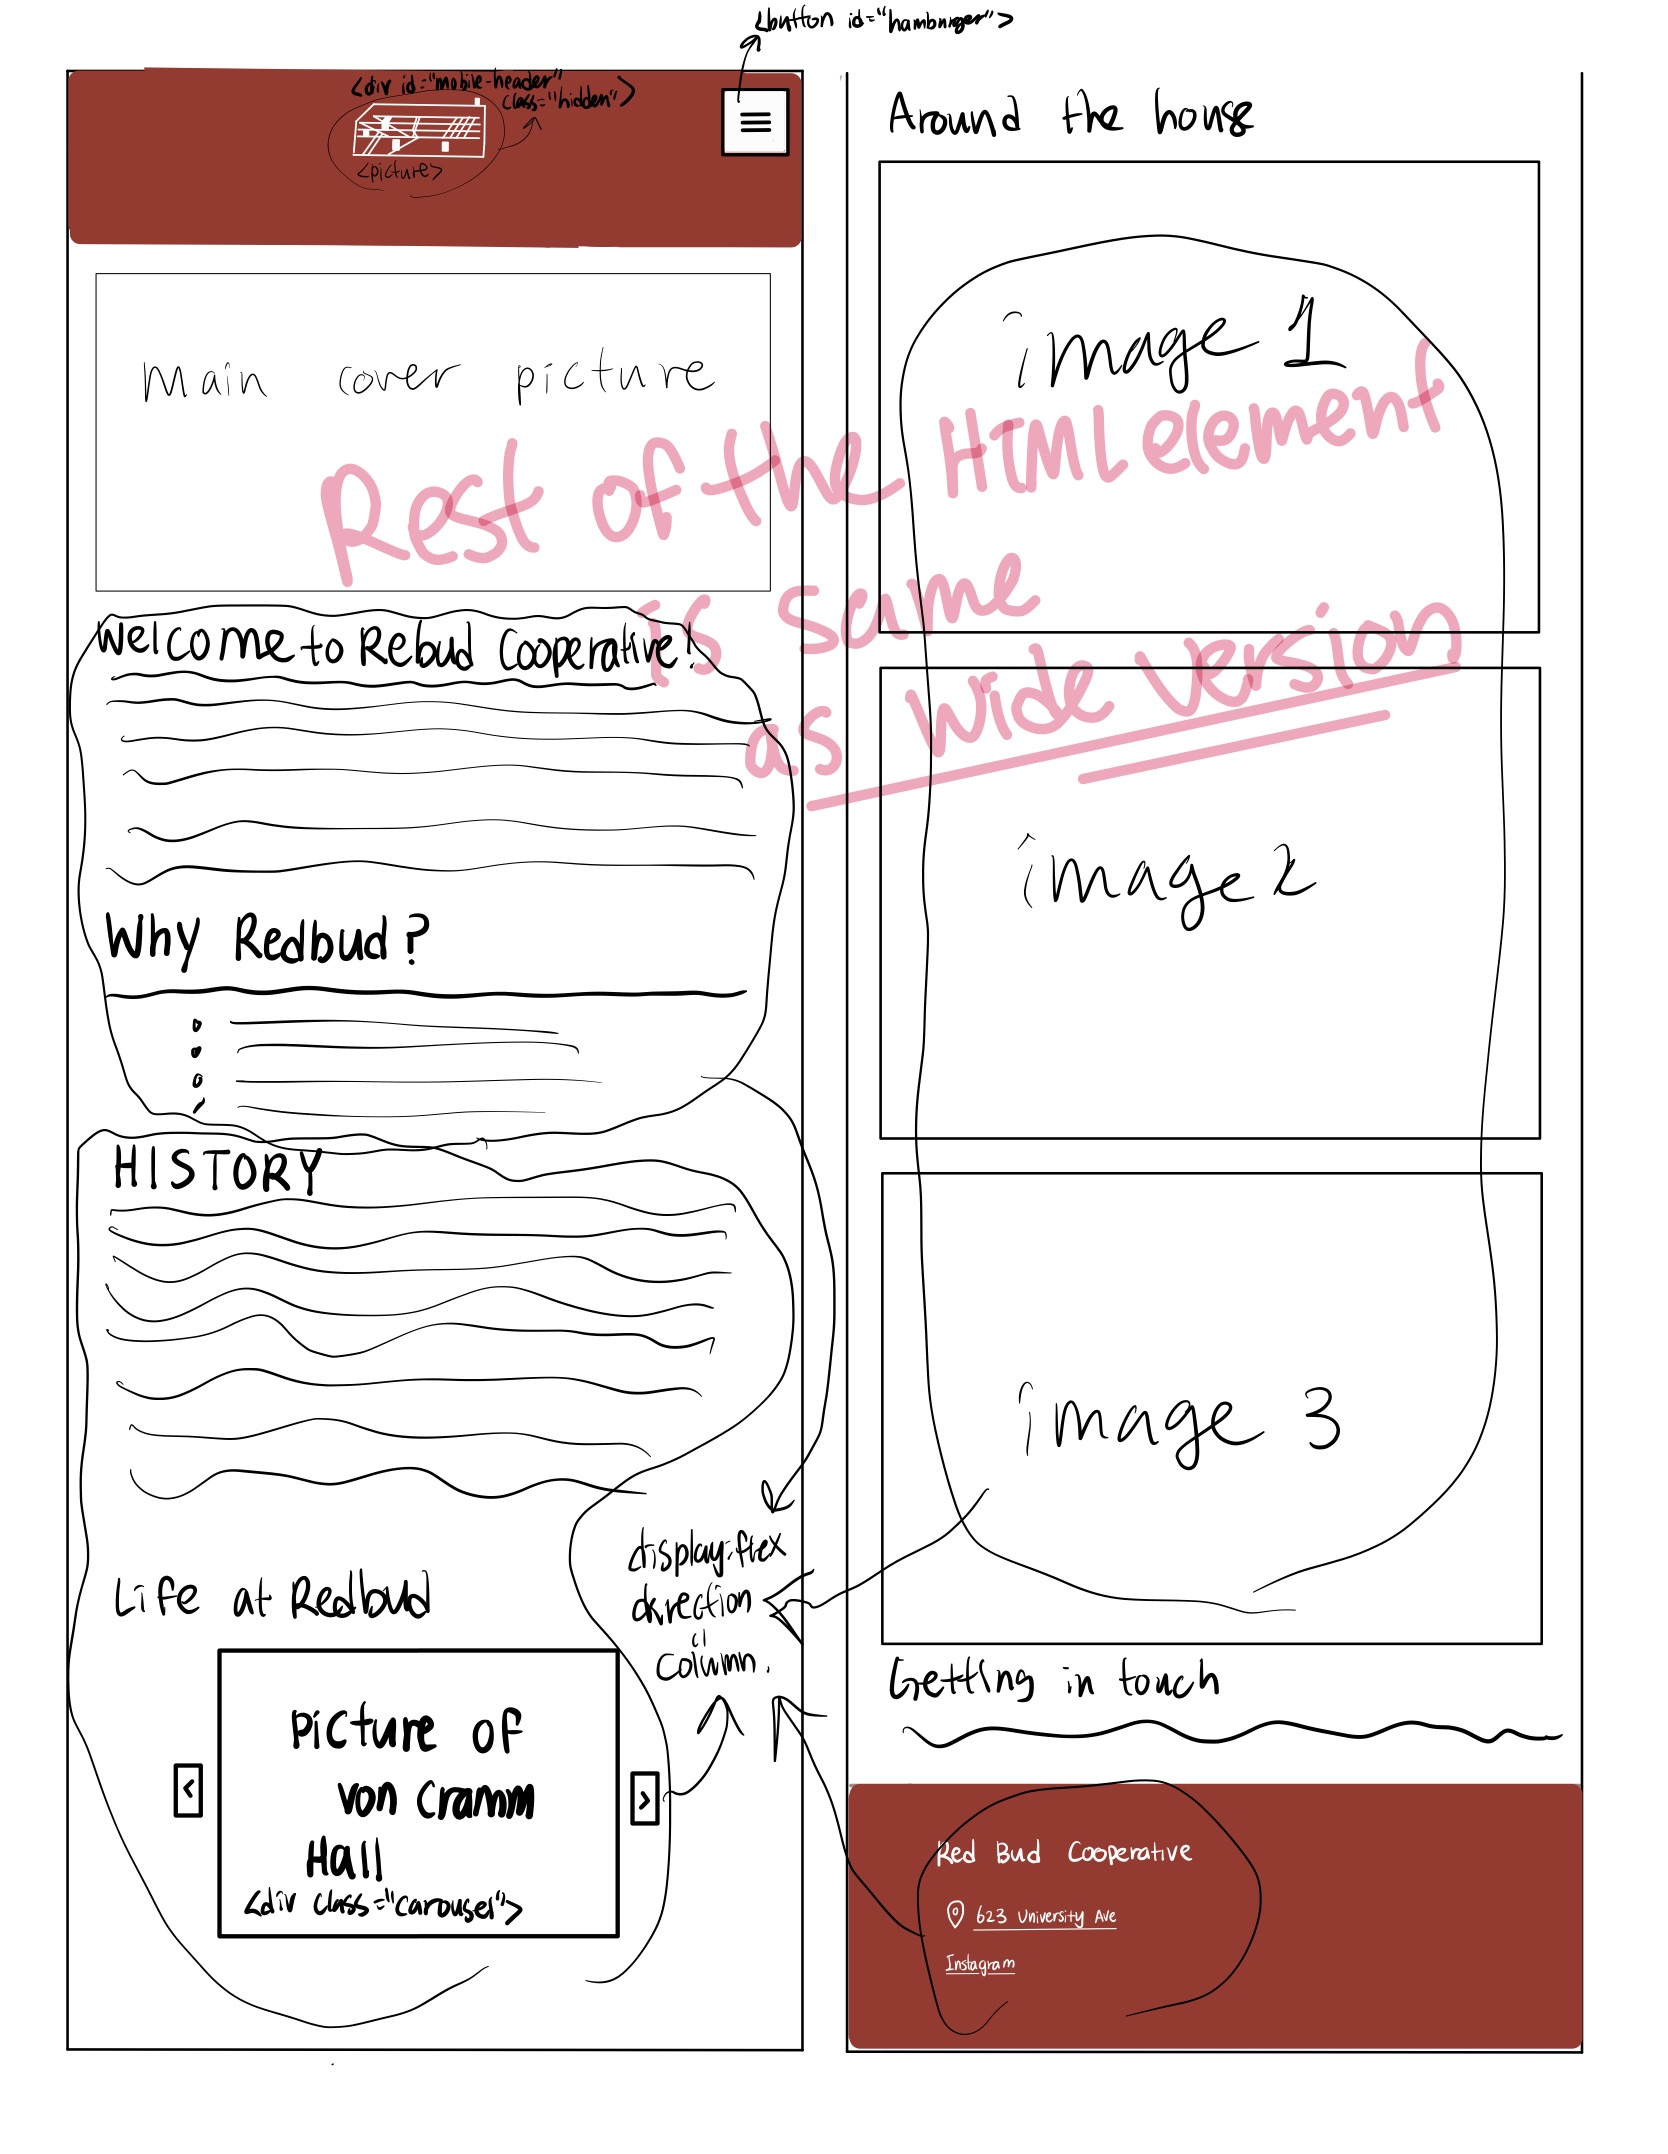 <button id="hamburger">
<div id="mobile-header"
class="hidden">
<picture>
main cover picture
Rest of the HTML element
is same
as wide version
Welcome to Rebud Cooperative!
Why Redbud?
HISTORY
Life at Redbud
<
picture of
von Cramm
Hall
<div class="carousel">
>
display:flex
direction
column.
Around the house
image 1
image 2
image 3
Getting in touch
Red Bud Cooperative
623 University Ave
Instagram